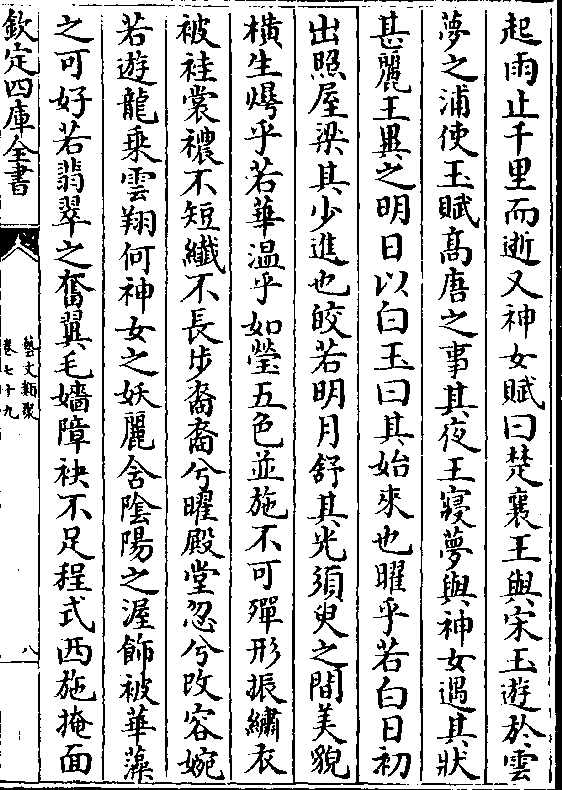 起雨止千里而逝又神女賦曰楚襄王與宋玉遊於雲
夢之浦使玉賦髙唐之事其夜王寝夢與神女遇其狀
甚麗王異之明日以白玉曰其始來也曜乎若白日初
出照屋梁其少進也皎若明月舒其光須臾之間美貌
橫生爗乎若華温乎如瑩五色並施不可殫形振繡衣
被袿裳襛不短纎不長步裔裔兮曜殿堂忽兮改容婉
若遊龍乗雲翔何神女之妖麗含陰陽之渥飾被華藻
之可好若翡翠之奮翼毛嬙障袂不足程式西施掩面
欽定四庫全書
藝文類聚
卷七十九
八